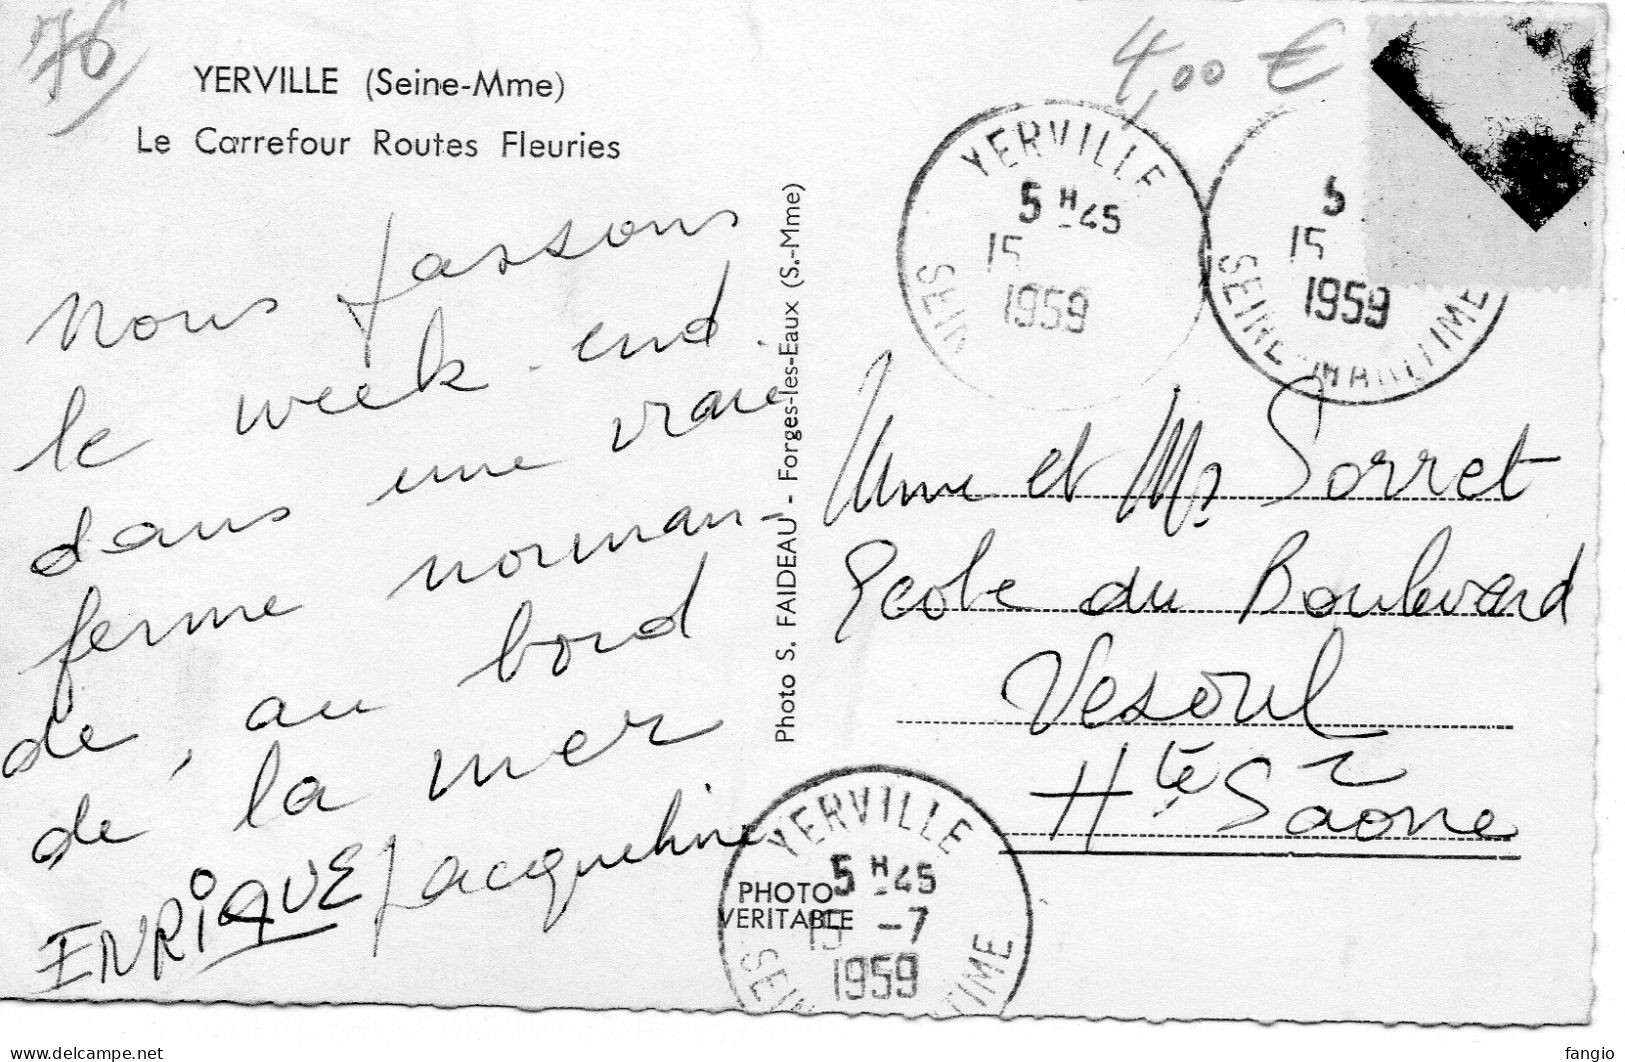 76
YERVILLE (Seine-Mme)
Le Carrefour Routes Fleuries
Nous passons
le week-end
dans une vraie
ferme norman-
de, au bord
de la mer
ENRiQUE Jacqueline
Photo S. FAIDEAU - Forges-les-Eaux (S.-Mme)
4,00 €
YERVILLE
5 H 45
15
1959
SEIN
5
15
1959
SEINE-MARITIME
Mme et Mr Sorret
Ecole du Boulevard
Vesoul
Hte Saone
PHOTO
VERITABLE
YERVILLE
5 H 45
15 -7
1959
www.delcampe.net
fangio